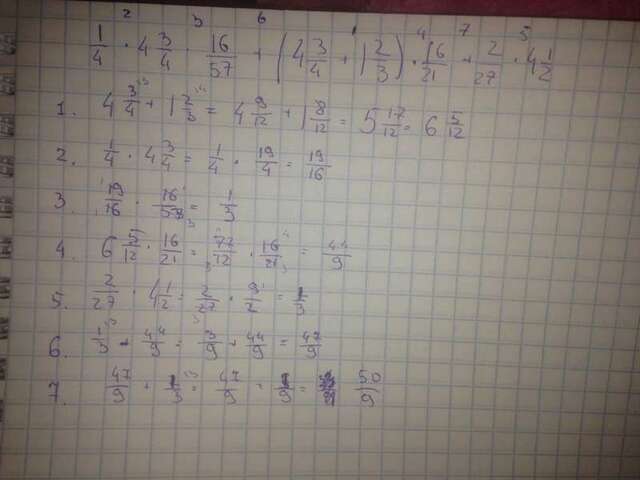 2 3 6 4 7 5
1/4 · 4 3/4 · 16/57 + (4 3/4 + 1 2/3) · 16/21 + 2/27 · 4 1/2
1. 4 3/4 + 1 2/3 = 4 9/12 + 1 8/12 = 5 17/12 = 6 5/12
2. 1/4 · 4 3/4 = 1/4 · 19/4 = 19/16
3. 19/16 · 16/57 = 1/3
4. 6 5/12 · 16/21 = 77/12 · 16/21 = 44/9
5. 2/27 · 4 1/2 = 2/27 · 9/2 = 1/3
6. 1/3 + 44/9 = 3/9 + 44/9 = 47/9
7. 47/9 + 1/3 = 47/9 + /9 = 50/9